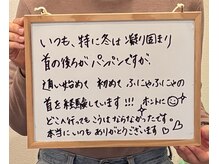 いつも、特に冬は凝り固まり
首の後ろがパンパンですが、
通い始めて 初めて ふにゃふにゃの
首を経験しています!!! ホントに☺✨
どこへ行ってもこうはならなかったです。
本当にいつもありがとうございます♡♡